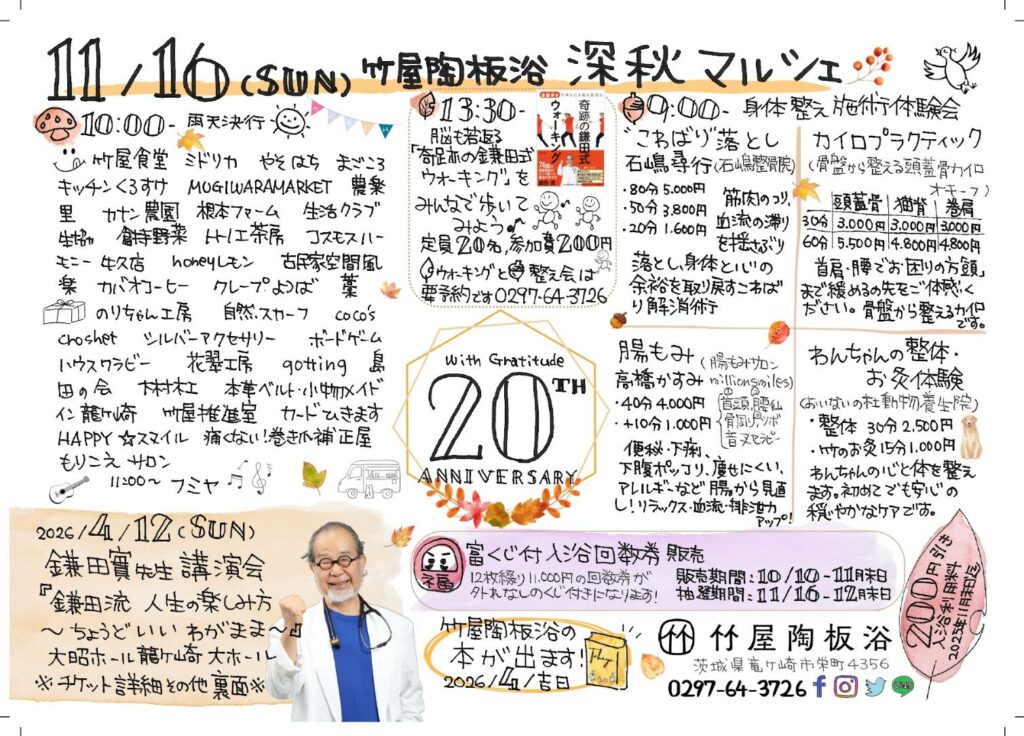 11/16(SUN) 竹屋陶板浴 深秋マルシェ
10:00- 雨天決行
竹屋食堂 ミドリカ やそはち まごころ
キッチンくるすけ MUGIWARAMARKET 農楽
里 カナン農園 根本ファーム 生活クラブ
生協 倉持野菜 トトノエ茶房 コスモスハー
モニー牛久店 honeyレモン 古民家空間風
楽 カバオコーヒー クレープよつば 葉
のりちゃん工房 自然.スカーフ coco's
croshet シルバーアクセサリー ボードゲーム
ハウスワラビー 花翠工房 gotting 島
田の会 木村木工 本革ベルト・小物メイド
イン龍ヶ崎 竹屋推進室 カードでいきます
HAPPY☆スマイル 痛くない!巻き爪補正屋
もりこえ サロン
11:00～ フミヤ
13:30-
脳も若返る
「奇跡の鎌田式
ウォーキング」を
みんなで歩いて
みよう♪
定員20名,参加費200円
ウォーキングと整え会は
要予約です0297-64-3726
奇跡の鎌田式
ウォーキング
9:00- 身体整え施術体験会
"こわばり"落とし
石嶋尋行(石嶋整骨院)
・80分 5.000円
・50分 3.800円
・20分 1.600円
筋肉のつり,
血流の滞り
を揺さぶり
落とし,身体と心の
余裕を取り戻すこわば
り解消術
カイロプラクティック
(骨盤から整える頭蓋骨カイロ
オキーフ)
頭蓋骨 猫背 巻肩
30分 3.000円 3.000円 3.000円
60分 5.500円 4.800円 4.800円
首肩・腰でお困りの方頭
まで緩めるの先をご体感く
ださい。骨盤から整えるカイロ
です。
With Gratitude
20TH
ANNIVERSARY
腸もみ(腸もみサロン
高橋かすみ millionsmiles)
・40分 4.000円
・+10分 1.000円
首頭,腰仙
骨周り,ツボ
音叉セラピー
便秘・下痢、
下腹ポッコリ、痩せにくい、
アレルギーなど腸から見直
し!リラックス・血流・排泄力
アップ!
わんちゃんの整体・
お灸体験
(おいないの杜動物養生院)
・整体 30分 2,500円
・竹のお灸15分1,000円
わんちゃんの心と体を整え
ます。初めてでも安心の
穏やかなケアです。
2026/4/12(SUN)
鎌田實先生 講演会
『鎌田流 人生の楽しみ方
～ちょうどいいわがまま～』
大昭ホール龍ヶ崎 大ホール
※チケット詳細その他裏面※
福
富くじ付入浴回数券 販売
12枚綴り11.000円の回数券が
外れなしのくじ付きになります!
販売期間:10/10-11月末日
抽選期間:11/16-12月末日
竹屋陶板浴の
本が出ます!
2026/4/吉日
竹屋陶板浴
茨城県竜ケ崎市栄町4356
0297-64-3726
200円引き
入浴ご利用料
2025年11月末日迄